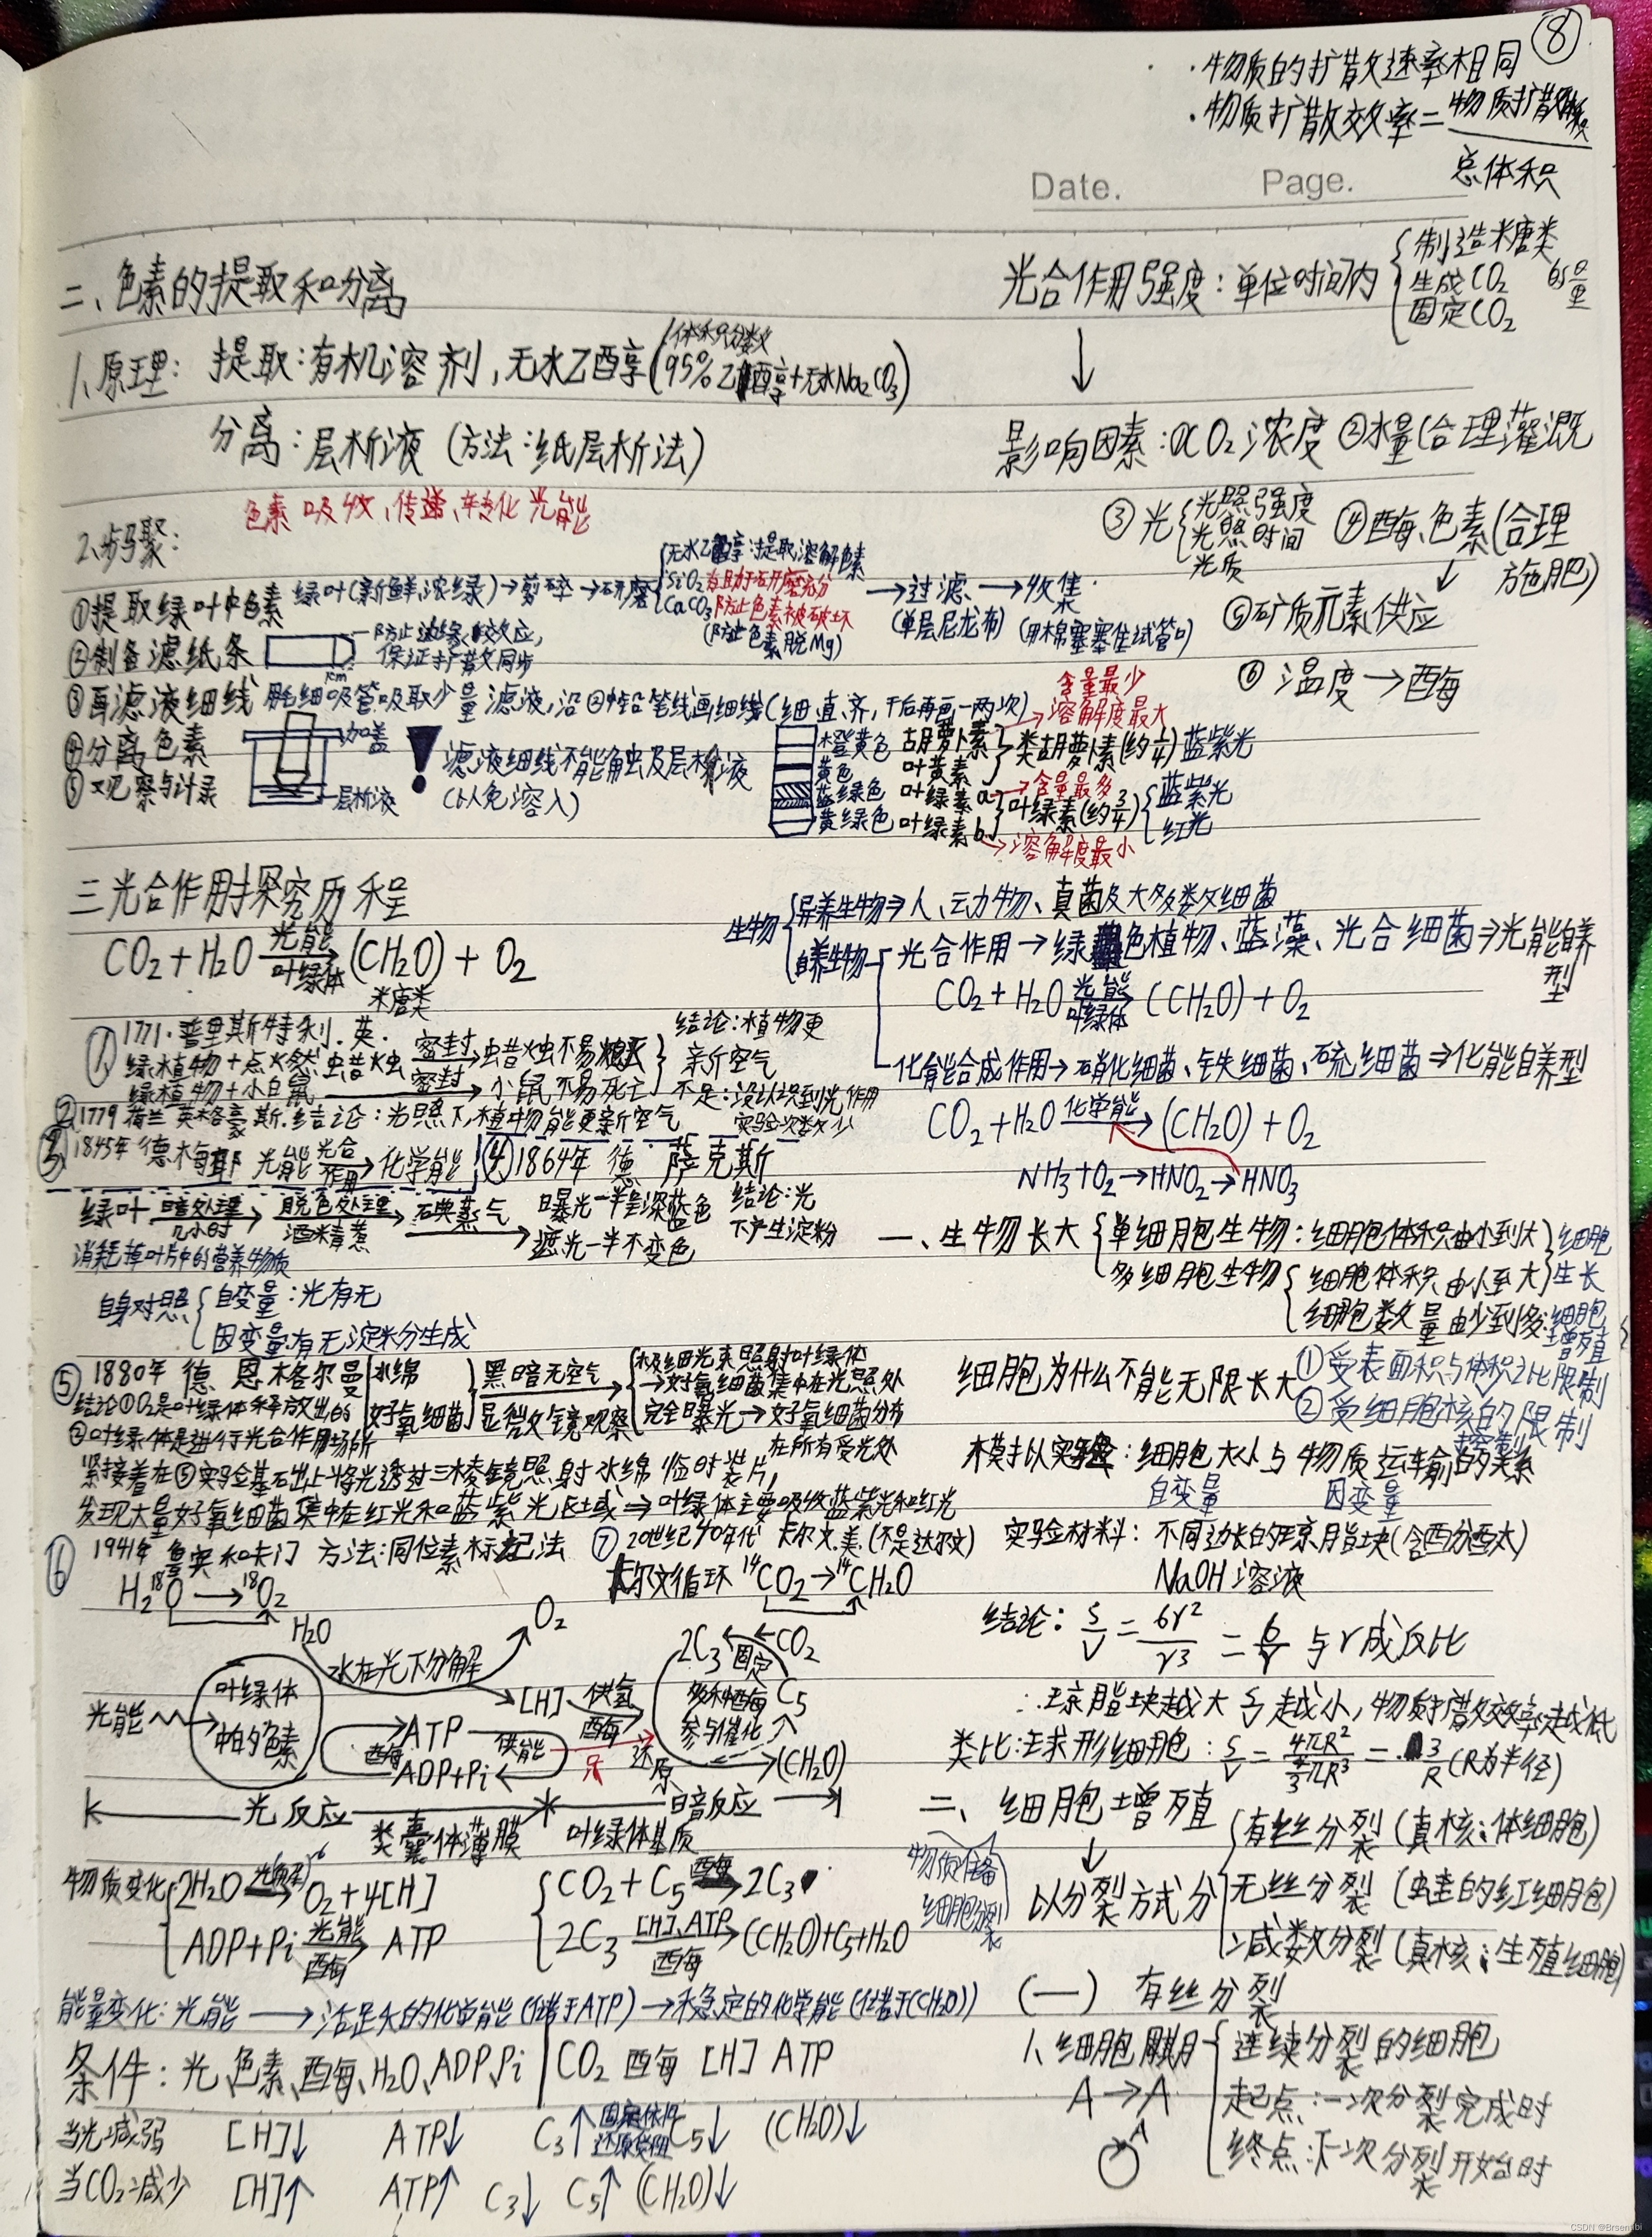 ⑧
·物质的扩散速率相同
·物质扩散效率=物质扩散体积/总体积
Date. Page.
二、色素的提取和分离
1、原理: 提取:有机溶剂,无水乙醇(体积分数95%乙醇+无水Na₂CO₃)
分离:层析液(方法:纸层析法)
色素 吸收、传递、转化 光能
2、步骤:
①提取绿叶中色素 绿叶(新鲜,浓绿)→剪碎→研磨
无水乙醇:提取溶解色素
SiO₂有助于研磨充分
CaCO₃防止色素被破坏
(防止色素脱Mg)
→过滤→收集
(单层尼龙布) (用棉塞塞住试管口)
②制备滤纸条
防止边缘效应,
保证扩散同步
1cm
③画滤液细线 用毛细吸管吸取少量滤液,沿②中铅笔线画细线(细、直、齐,干后再画一两次)
④分离色素
加盖
层析液
⑤观察与计录
滤液细线不能触及层析液
(以免溶入)
橙黄色 胡萝卜素
黄色 叶黄素
类胡萝卜素(约1/4)蓝紫光
含量最少
溶解度最大
蓝绿色 叶绿素a
黄绿色 叶绿素b
含量最多
叶绿素(约3/4)
蓝紫光
红光
溶解度最小
光合作用强度:单位时间内
制造糖类
生成CO₂
固定CO₂
的量
影响因素:①CO₂浓度 ②水量(合理灌溉
③光
光照强度
光照时间
光质
④酶、色素(合理
施肥)
⑤矿质元素供应
⑥温度→酶
三光合作用探究历程
CO₂+H₂O 光能/叶绿体→(CH₂O)+O₂
糖类
① 1771.普里斯特利.英.
绿植物+点火燃蜡烛 密封→蜡烛不易熄灭
绿植物+小白鼠 密封→小鼠不易死亡
结论:植物更
新空气
不足:没认识到光作用
实验次数少
②1779 荷兰 英格豪斯.结论:光照下,植物能更新空气
③1845年 德 梅耶 光能 光合作用→化学能
④1864年 德 萨克斯
绿叶 暗处理/几小时→脱色处理/酒精煮→碘蒸气
曝光一半呈深蓝色
遮光一半不变色
结论:光
下产生淀粉
消耗掉叶片中的营养物质
自身对照
自变量:光有无
因变量:有无淀粉分生成
⑤1880年 德 恩格尔曼
水绵
好氧细菌
黑暗无空气
显微镜观察
极细光束照射叶绿体
→好氧细菌集中在光照处
完全曝光→好氧细菌分布
在所有受光处
结论①O₂是叶绿体释放出的
②叶绿体是进行光合作用场所
紧接着在⑤实验基础上将光透过三棱镜照射水绵临时装片,
发现大量好氧细菌集中在红光和蓝紫光区域⇒叶绿体主要吸收蓝紫光和红光
⑥ 1941年 鲁宾和卡门 方法:同位素标记法
H₂¹⁸O→¹⁸O₂
⑦ 20世纪40年代 卡尔文.美.(不是达尔文)
卡尔文循环 ¹⁴CO₂→¹⁴CH₂O
H₂O
O₂
水在光下分解
光能
叶绿体
中的色素
[H] 供氢
酶
酶
ATP
ADP+Pi
供能
还原
2C₃
固定
CO₂
多种酶
参与催化
C₅
(CH₂O)
光反应
暗反应
类囊体薄膜
叶绿体基质
物质变化
2H₂O 光解→O₂+4[H]
ADP+Pi 光能/酶→ATP
CO₂+C₅ 酶→2C₃
2C₃ [H]、ATP/酶→(CH₂O)+C₅+H₂O
能量变化:光能→活跃的化学能(储于ATP)→稳定的化学能(储于(CH₂O))
条件:光、色素、酶、H₂O、ADP、Pi CO₂ 酶 [H] ATP
当光减弱 [H]↓ ATP↓ C₃↑ C₅↓ (CH₂O)↓
当CO₂减少 [H]↑ ATP↑ C₃↓ C₅↑ (CH₂O)↓
生物
异养生物⇒人、动物、真菌及大多数细菌
自养生物
光合作用→绿色植物、蓝藻、光合细菌⇒光能自养型
CO₂+H₂O 光能/叶绿体→(CH₂O)+O₂
化能合成作用→硝化细菌、铁细菌、硫细菌⇒化能自养型
CO₂+H₂O 化学能→(CH₂O)+O₂
NH₃+O₂→HNO₂→HNO₃
一、生物长大
单细胞生物:细胞体积由小到大
多细胞生物
细胞体积由小至大
细胞数量由少到多:
细胞
生长
细胞
增殖
细胞为什么不能无限长大
①受表面积与体积之比限制
②受细胞核的限制
控制
模拟实验:细胞大小与物质运输的关系
自变量 因变量
实验材料:不同边长的琼脂块(含酚酞)
NaOH溶液
结论:S/V=6r²/r³=6/r 与r成反比
∴琼脂块越大 S/V越小,物质扩散效率越低
类比:球形细胞:S/V=4πR²/(4/3πR³)=3/R(R为半径)
二、细胞增殖
物质准备
细胞分裂
以分裂方式分
有丝分裂(真核:体细胞)
无丝分裂(蛙的红细胞)
减数分裂(真核:生殖细胞)
(一) 有丝分裂
1、细胞周期
连续分裂的细胞
起点:一次分裂完成时
终点:下一次分裂开始时
A→A
A
CSDN @Brsenbbi